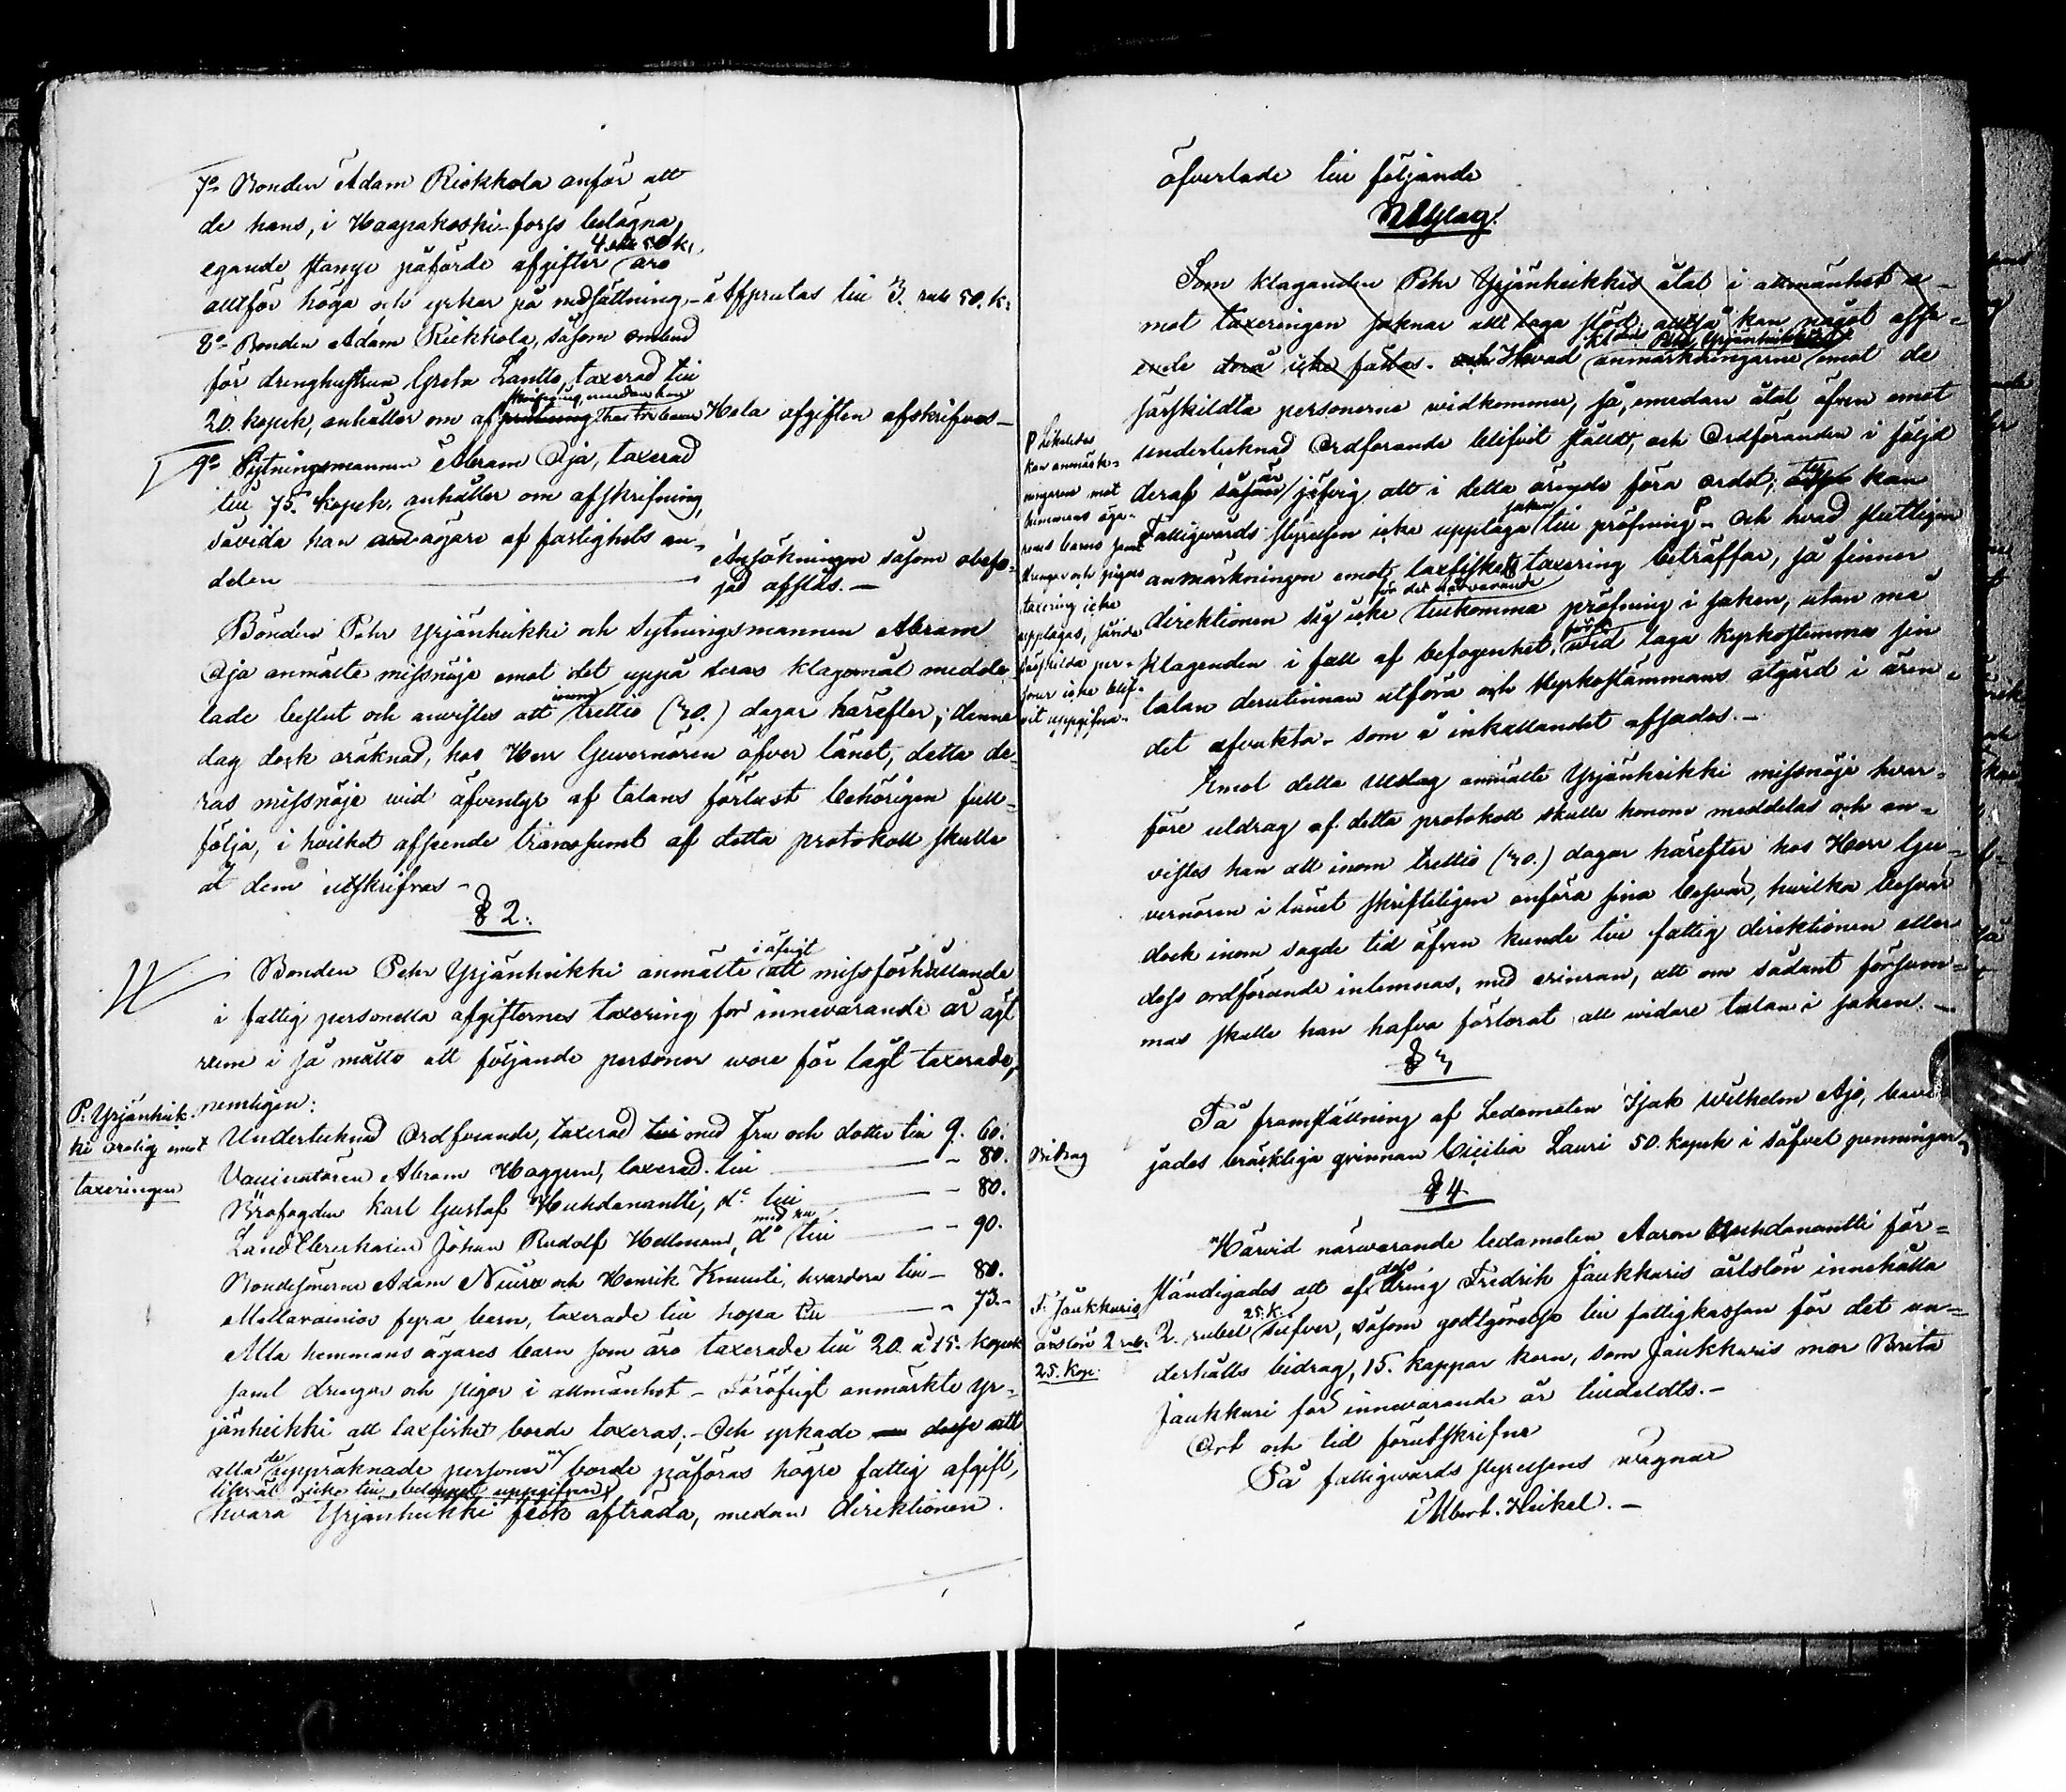 7o Bonden Adam Riekkola anför att
de hans, i Haapakoski-forss belägna,
egande stånge påförde afgifter 4 rub 50 k. äro
alltför höga och yrkar på nedsättning, - Afprutas till 3. rub 50. k:
8o Bonden Adam Riekkola, såsom ombud
för drenghustrun Greta Lantto, taxerad till
20. kopek, anhåller om afskrifning, emedan hon har tre barn Hela afgiften afskrifves -
9o Sytningsmannen Abram Oja, taxerad
till 75. kopek, anhåller om afskrifning,
såvida han är ägare af fastighets an-
delen
Ansökningen såsom obefo-
gad afslås. -
Bönder Pehr Yrjänheikki och Sytningsmannen Abram
Oja anmälte missnöje emot det uppå deras klagomål medde-
lade beslut och anvistes att inom trettio (30.) dagar härefter, denna
dag dock oräknad, hos Herr Guvernören öfver länet, detta de-
ras missnöje wid äfventyr af talans förlust behörigen full-
följa, i hvilket afseende transsumt af detta protokoll skulle
åt dem utskrifvas -
§ 2.
Bonden Pehr Yrjänheikki anmälte i öfrigt att missförhållande
i fattig personella afgifternes taxering för innevarande år ägt
rum i så måtto att följande personer wore för lågt taxerade,
nemligen:
P: Yrjänheik-
ki orolig emot
taxeringen
Undertecknad Ordförande, taxerad med Fru och dotter till 9. 60.
Vaccinatören Abram Haggren, taxerad till - 80.
Brofogden Karl Gustaf Huhdanantti, do till - 80.
Landtlerenhaien Johan Rudolf Hellman, do med fru till - 90.
Bondesönerne Adam Niura och Henrik Knuuti, hvardera till - 80.
Mellavainios fyra barn, taxerade till hopa till - 73.-
Alla hemmans ägares barn som äro taxerade till 20 à 15. kopek
samt drengar och pigor i allmänhet - Föröfrigt anmärkte Yr-
jänheikki att laxfisket borde taxeras; - Och yrkade att
alla de uppräknade personer borde påföras högre fattig afgift,
likväl icke till beloppet uppgifven
hvarå Yrjänheikki fick afträda, medan direktionen
öfverlade till följande
Utslag.
Som klaganden Pehr Yrjänheikkis åtal i allmänhet e-
mot taxeringen saknar allt laga stöd, alltså kan något afse-
ende derå icke fästas. Hvad klden Pehr Yrjänheikkis anmärkningarne emot de
särskildta personerne widkommer, så, emedan åtal äfven emot
undertecknad Ordförande blifvit ställdt, och Ordföranden i följd
deraf är jäfvig att i detta ärende föra ordet, kan
Fattigvårds styrelsen icke upptaga saken till pröfning - Och hvad slutligen
anmärkningen emot laxfiskets taxering beträffar, så finner
direktionen sig icke för det närvarande tillkomma pröfning i saken, utan må
klaganden i fall af befogenhet, först wid laga kyrkostemma sin
talan derutinnan utföra och Kyrkostämmans åtgärd i ären-
det afvakta - som å inkallandet afsades. -
P Likaledes
kan anmärk-
ningarne mot
hemmans äga-
rens barns samt
drengar och pigors
taxering icke
upptagas, såvida
särskilda per-
soner icke blif-
vit uppgifna -
Emot detta Utslag anmälte Yrjänheikki missnöje hvar-
före utdrag af detta protokoll skulle honom meddelas och an-
vistes han att inom trettio (30.) dagar härefter hos Herr Gu-
vernören i länet skrifteligen anföra sina besvär, hvilka besvär
dock inom sagde tid äfven kunde till fattig direktionen eller
dess ordförande inlemnas, med erinran, att om sådant försum-
mas skulle han hafva förlorat all widare talan i saken. -
§ 3
På framställning af Ledamoten Isak Wilhelm Ajo, bevil-
jades bräckliga qvinnan Cicilia Lauri 50. kopek i såfvel penningar,
Bidrag
§ 4.
Härvid närwarande ledamoten Aaron Huhdanantti för-
ständigades att af dess dräng Fredrik Jaukkuris årslön innehålla
2. rubel 25. k. silfver, såsom godtgörelse till fattigkassan för det un-
derhålls bidrag, 15. kappar korn, som Jaukkuris mor Brita
Jaukkuri för innevarande år tilldeldts. -
F: Jaukkuris
årslön 2 rub.
25. kop.
Ort och tid förutskrifne
På fattigvårds styrelsens wägnar
Albert. Heikel. -